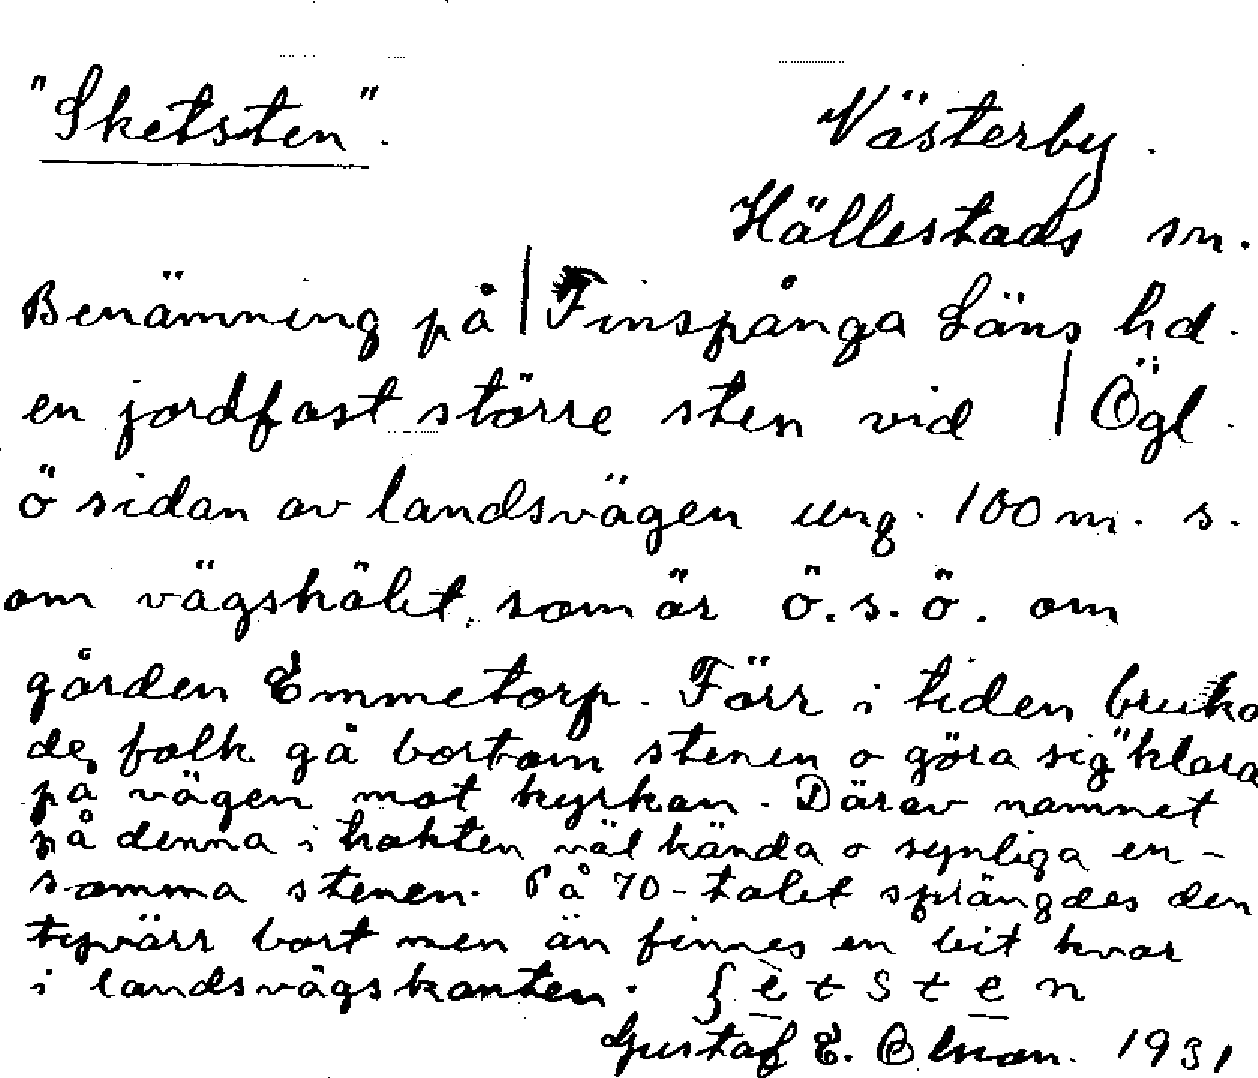 "Sketsten".
Västerby.
Hällestads sn.
Benämning på | Finspånga Läns hd.
en jordfast större sten vid | Ögl.
ö sidan av landsvägen ung. 100 m. s.
om vägskälet, som är ö.s.ö. om
gården Emmetorp. Förr i tiden bruka
de folk gå bortom stenen o göra sig "klara
på vägen mot kyrkan. Därav namnet
på denna i trakten väl kända o synliga en-
samma stenen. På 70-talet sprängdes den
tyvärr bort men än finnes en bit kvar
i landsvägskanten. ʃètsten
Gustaf E. 1931